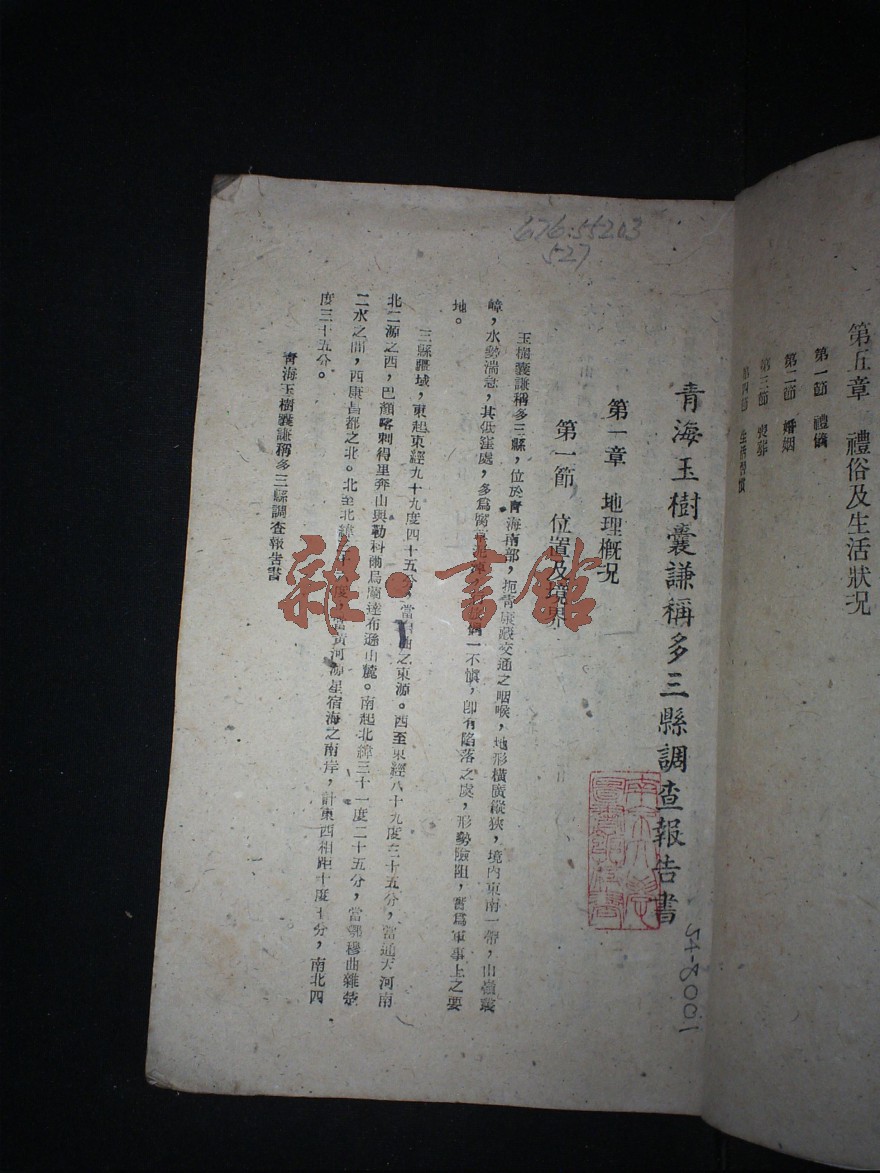 第五章　禮俗及生活狀況
第一節　禮儀
第二節　婚姻
第三節　喪葬
第四節　生活習慣
676.55203
527
青海玉樹囊謙稱多三縣調查報告書
54-8001
第一章　地理概況
第一節　位置及境界
玉樹囊謙稱多三縣，位於青海南部，扼青康藏交通之咽喉，地形橫廣縱狹，境內東南一帶，山嶺叢
嶂，水勢湍急，其低窪處，多爲腐草泥淖，偶一不愼，卽有陷落之虞，形勢險阻，實爲軍事上之要
地。
三縣疆域，東起東經九十九度四十五分，當曲之東源。西至東經八十九度三十五分，當通天河南
北二源之西，巴顏喀剌得里奔山與勒科爾烏蘭達布遜山麓。南起北緯三十一度二十五分，當鄂穆曲雜楚
二水之間，西康昌都之北。北至北緯度，當黃河源星宿海之南岸，計東西相距十度十分，南北四
度三十五分。
青海玉樹囊謙稱多三縣調查報告書
雜·書館